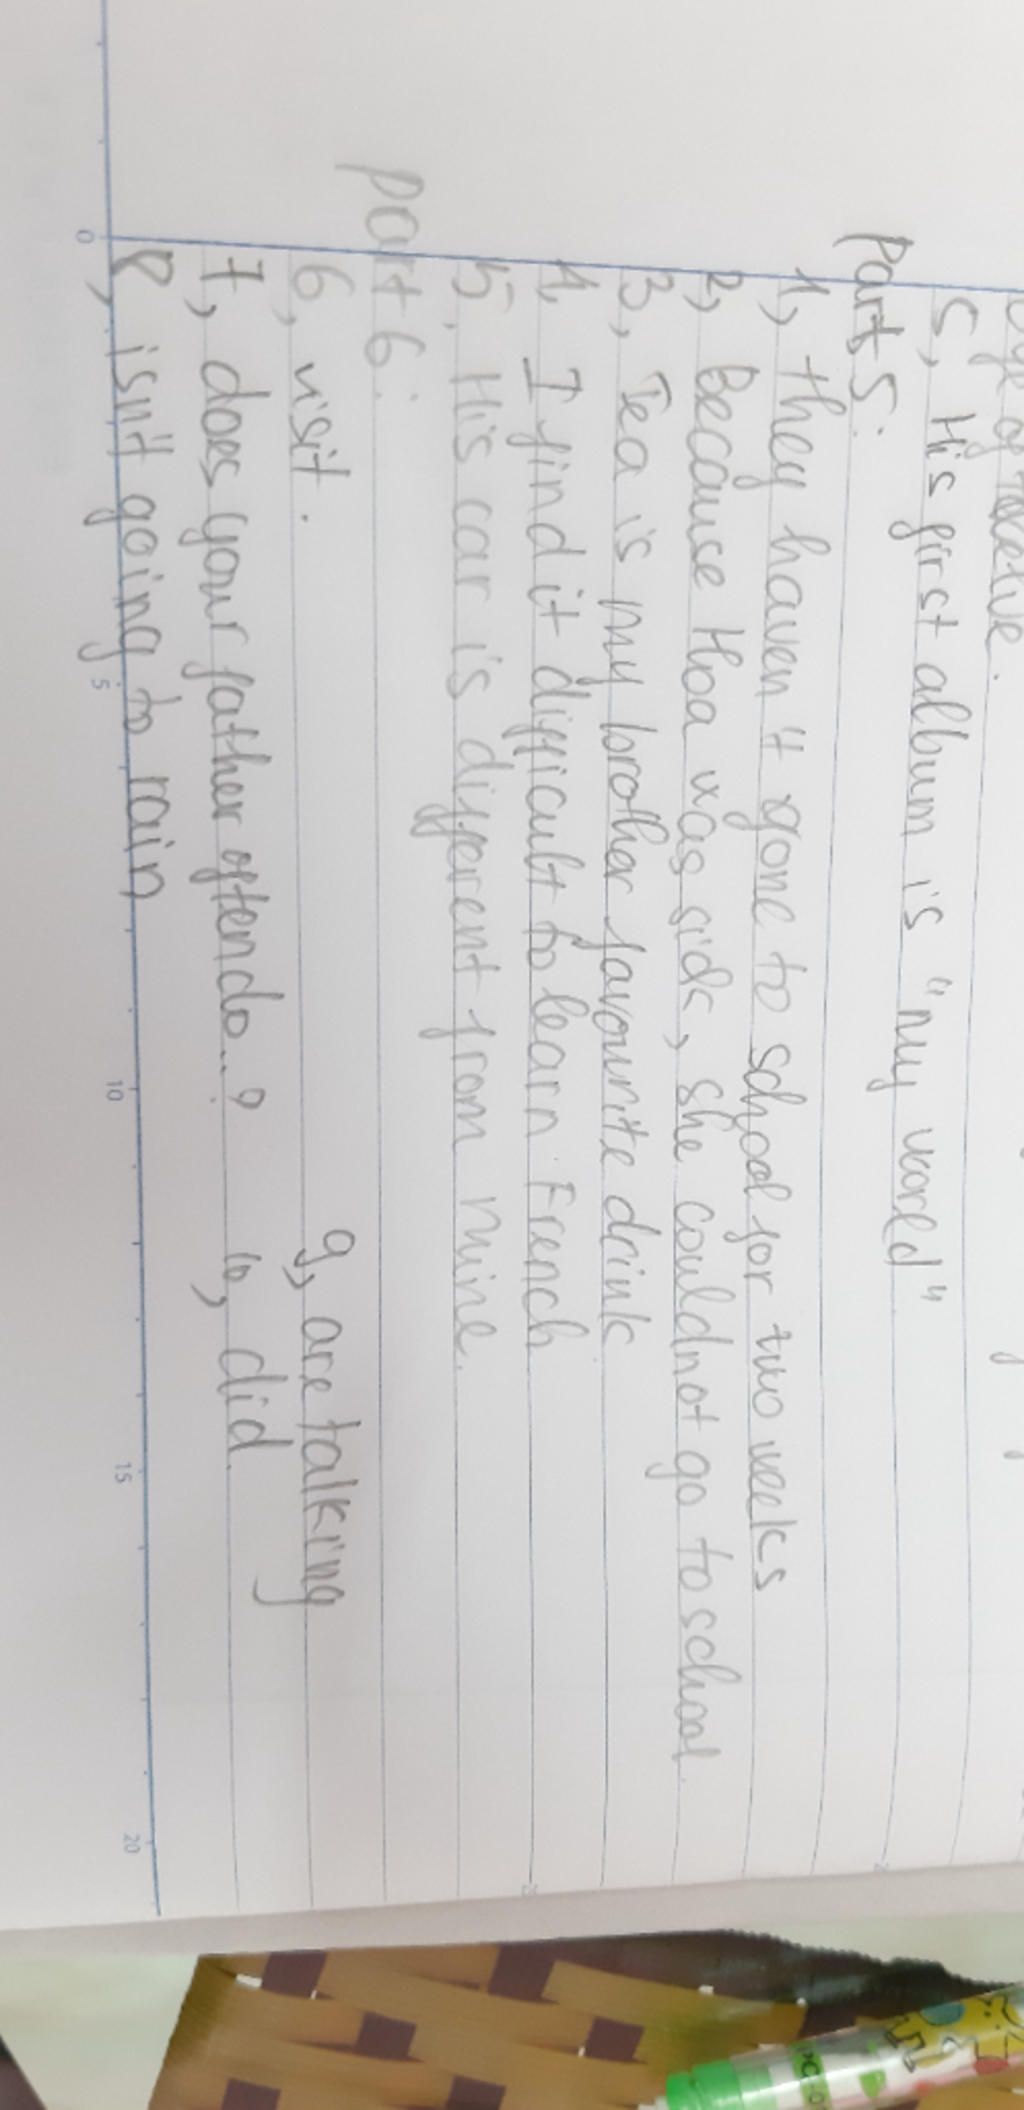 age of twelve.
5, His first album is "My world"
Part 5:
1, they haven't gone to school for two weeks
2, Because Hoa was sick, she couldnot go to school.
3, Tea is my brother favourite drink
4, I find it difficult to learn French.
5, His car is different from mine.
part 6:
6, visit.
9, are talking
7, does your father often do...?
10, did
8, isn't going to rain
0 5 10 15 20